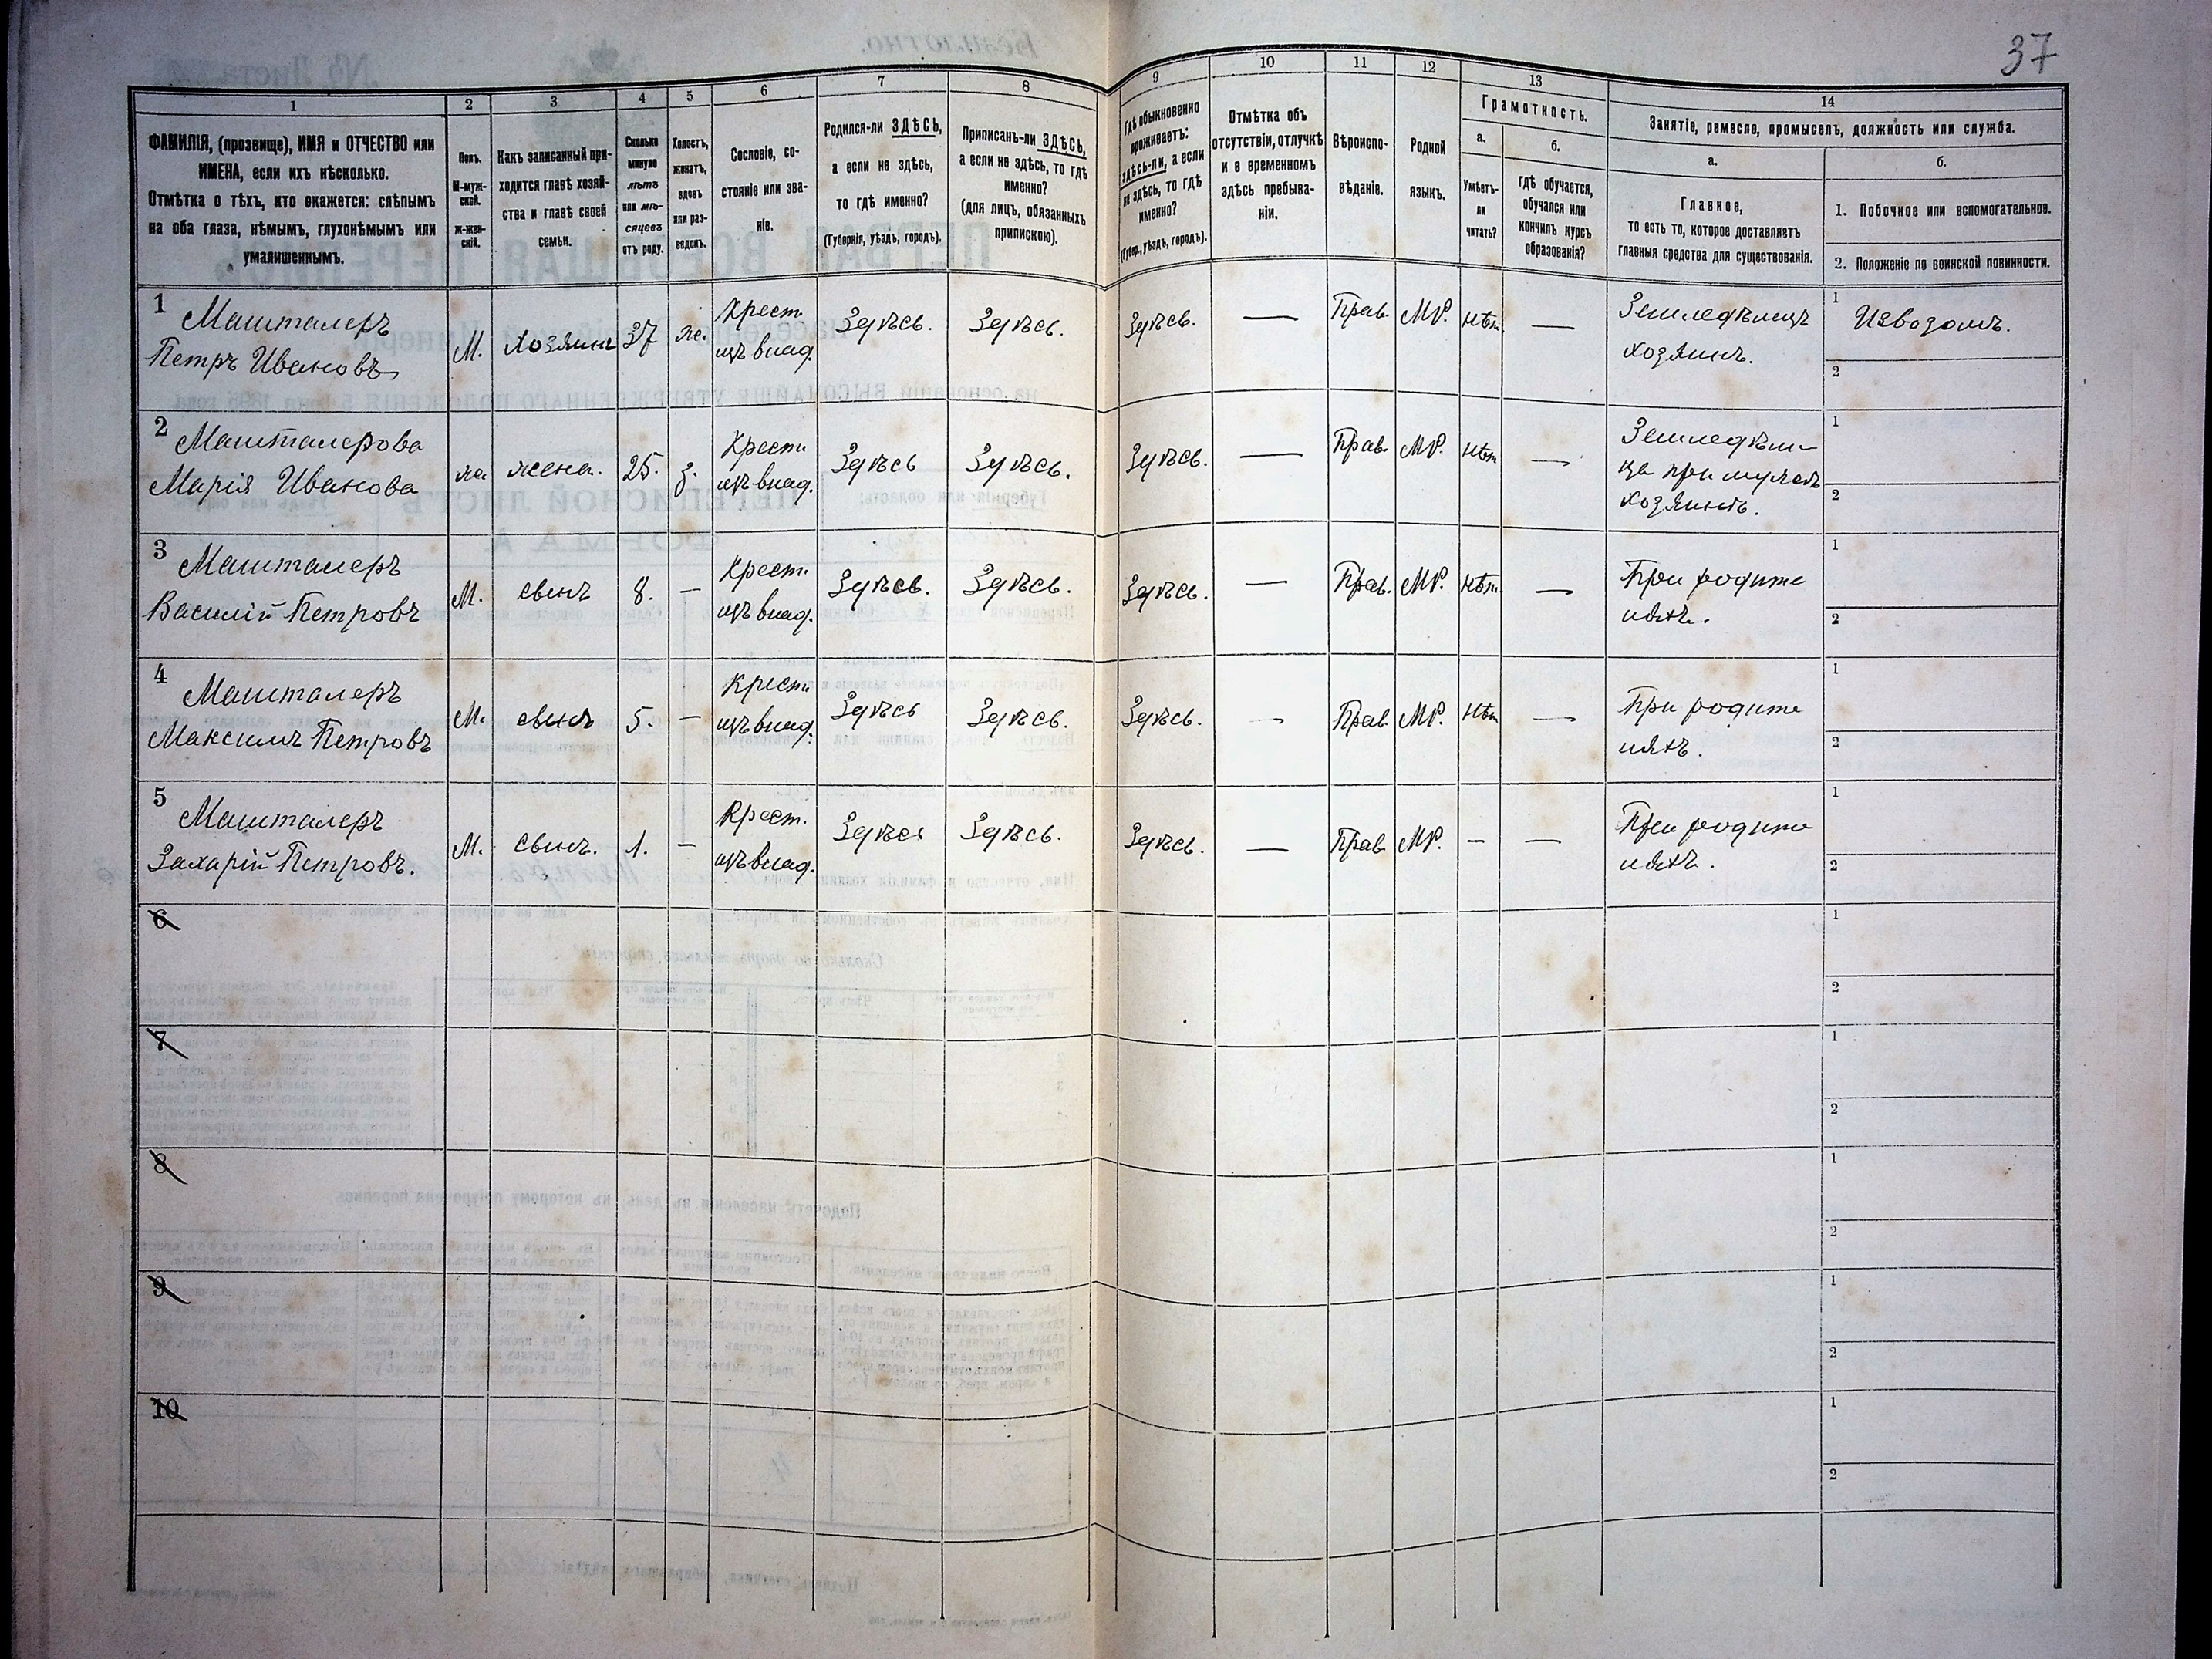 37
1
2
3
4
5
6
7
8
9
10
11
12
13
14
ФАМИЛІЯ, (прозвище), ИМЯ и ОТЧЕСТВО или
ИМЕНА, если ихъ нѣсколько.
Отмѣтка о тѣхъ, кто окажется: слѣпымъ
на оба глаза, нѣмымъ, глухонѣмымъ или
умалишеннымъ.
Полъ.
М-муж-
ской.
ж-жен-
скій.
Какъ записанный при-
ходится главѣ хозяй-
ства и главѣ своей
семьи.
Сколько
минуло
лѣтъ
или мѣ-
сяцевъ
отъ роду.
Холостъ,
женатъ,
вдовъ
или раз-
веденъ.
Сословіе, со-
стояніе или зва-
ніе.
Родился-ли ЗДѢСЬ,
а если не здѣсь,
то гдѣ именно?
(Губернія, уѣздъ, городъ).
Приписанъ-ли ЗДѢСЬ,
а если не здѣсь, то гдѣ
именно?
(для лицъ, обязанныхъ
припискою).
Гдѣ обыкновенно
проживаетъ:
здѣсь-ли, а если
не здѣсь, то гдѣ
именно?
(Губерн., уѣздъ, городъ).
Отмѣтка объ
отсутствіи, отлучкѣ
и в временномъ
здѣсь пребыва-
ніи.
Вѣроиспо-
вѣданіе.
Родной
языкъ.
Грамотность.
а.
Умѣетъ-
ли
читать?
б.
гдѣ обучается,
обучался или
кончилъ курсъ
образованія?
Занятіе, ремесло, промыселъ, должность или служба.
а.
Главное,
то есть то, которое доставляетъ
главныя средства для существованія.
б.
1. Побочное или вспомогательное.
2. Положеніе по воинской повинности.
1 Машталеръ
Петръ Ивановъ
М.
Хозяинъ
37
же.
Крест.
изъ влад.
Здѣсь.
Здѣсь.
Здѣсь.
—
Прав.
МР.
нѣт
—
Земледѣлецъ
хозяинъ.
1 Извозомъ.
2
2 Машталерова
Марія Иванова
же.
жена.
25.
з.
Крест.
изъ влад.
Здѣсь
Здѣсь.
Здѣсь.
—
Прав.
МР.
нѣт
—
Земледѣли-
ца при мужѣ
хозяинѣ.
1
2
3 Машталеръ
Василій Петровъ
М.
сынъ
8.
—
Крест.
изъ влад.
Здѣсь.
Здѣсь.
Здѣсь.
—
Прав.
МР.
нѣт
—
При родите
ляхъ.
1
2
4 Машталеръ
Максимъ Петровъ
М.
сынъ
5.
—
Крест
изъ влад.
Здѣсь
Здѣсь.
Здѣсь.
—
Прав.
МР.
нѣт
—
При родите
ляхъ.
1
2
5 Машталеръ
Захарій Петровъ.
М.
сынъ.
1.
—
Крест.
изъ влад.
Здѣсь
Здѣсь.
Здѣсь.
—
Прав
МР.
—
—
При родите
ляхъ.
1
2
6
1
2
7
1
2
8
1
2
9
1
2
10
1
2